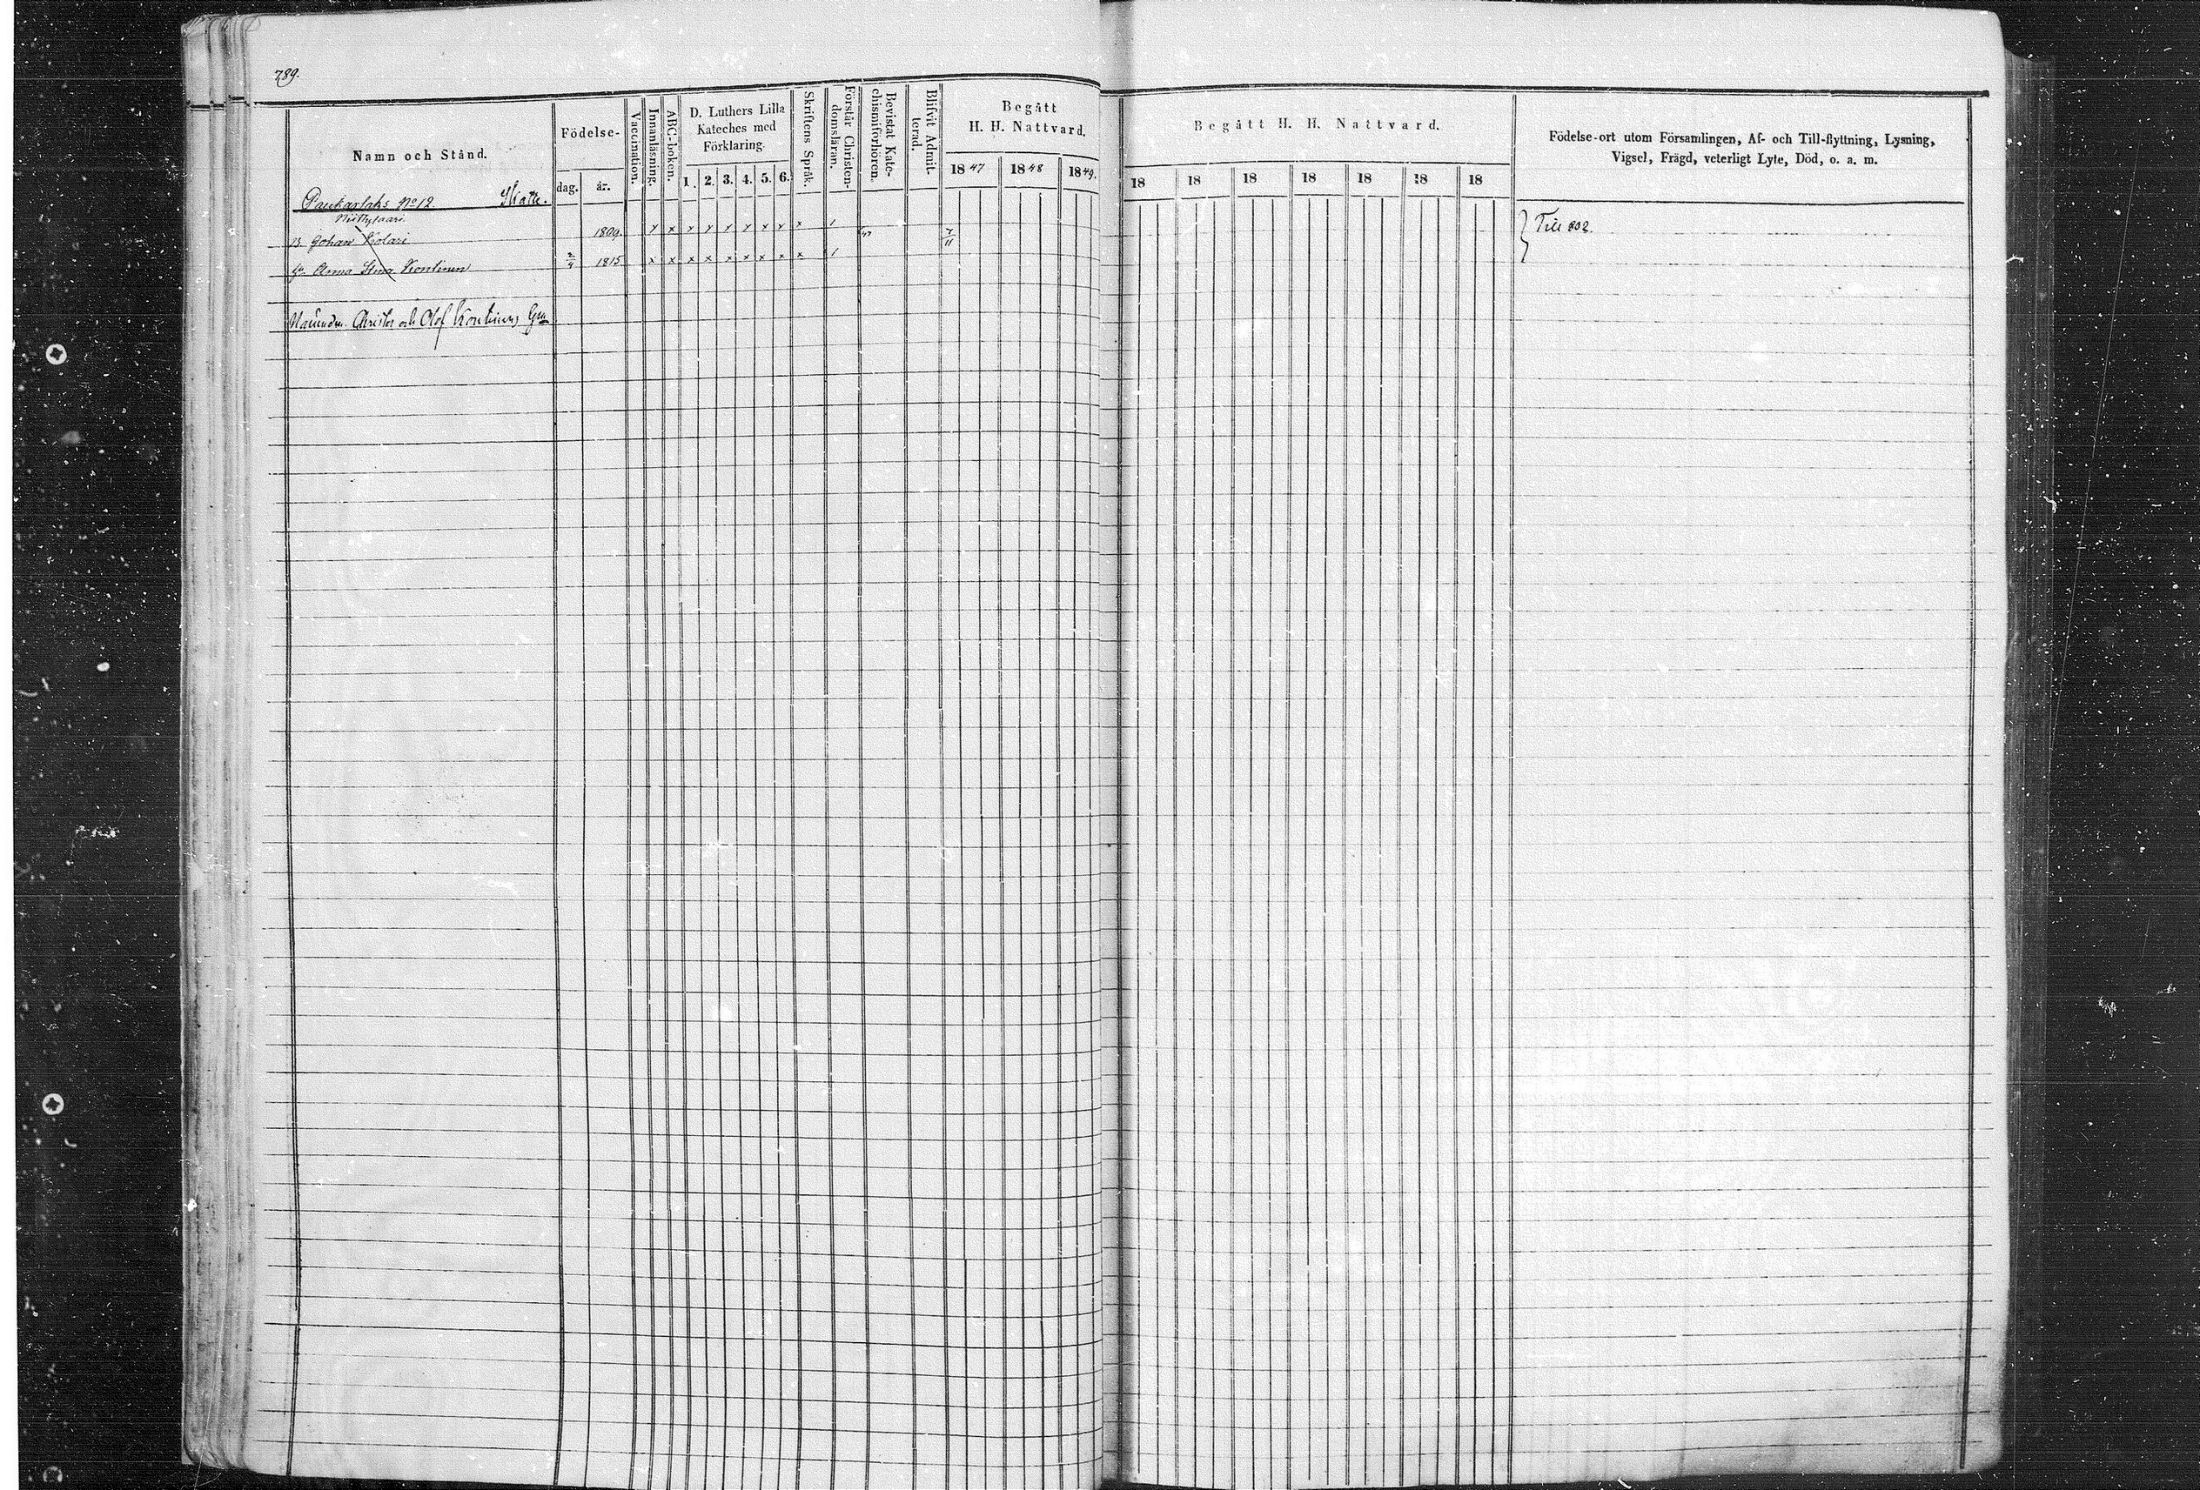 789.
Namn och Stånd.
Födelse-
dag. år.
Vaccination.
Innanläsning.
ABC-boken.
D. Luthers Lilla
Kateches med
Förklaring.
1. 2. 3. 4. 5. 6.
Skriftens Språk.
Förstår Christen-
domsläran.
Bevistat Kate-
chismiförhören.
Blifvit Admit-
terad.
Begått
H. H. Nattvard.
1847 1848 1849.
Begått H. H. Nattvard.
18 18 18 18 18 18 18
Födelse-ort utom Församlingen, Af- och Till-flyttning, Lysning,
Vigsel, Frägd, veterligt Lyte, Död, o. a. m.
Paukarlaks No 12.
B. Johan Kolari 1809. x x x x x x x x x 1 7/11
Till 802.
Anna Stina Kontinen 2/4 1815 x x x x x x x x x 1
Christer och Olof Kontinens